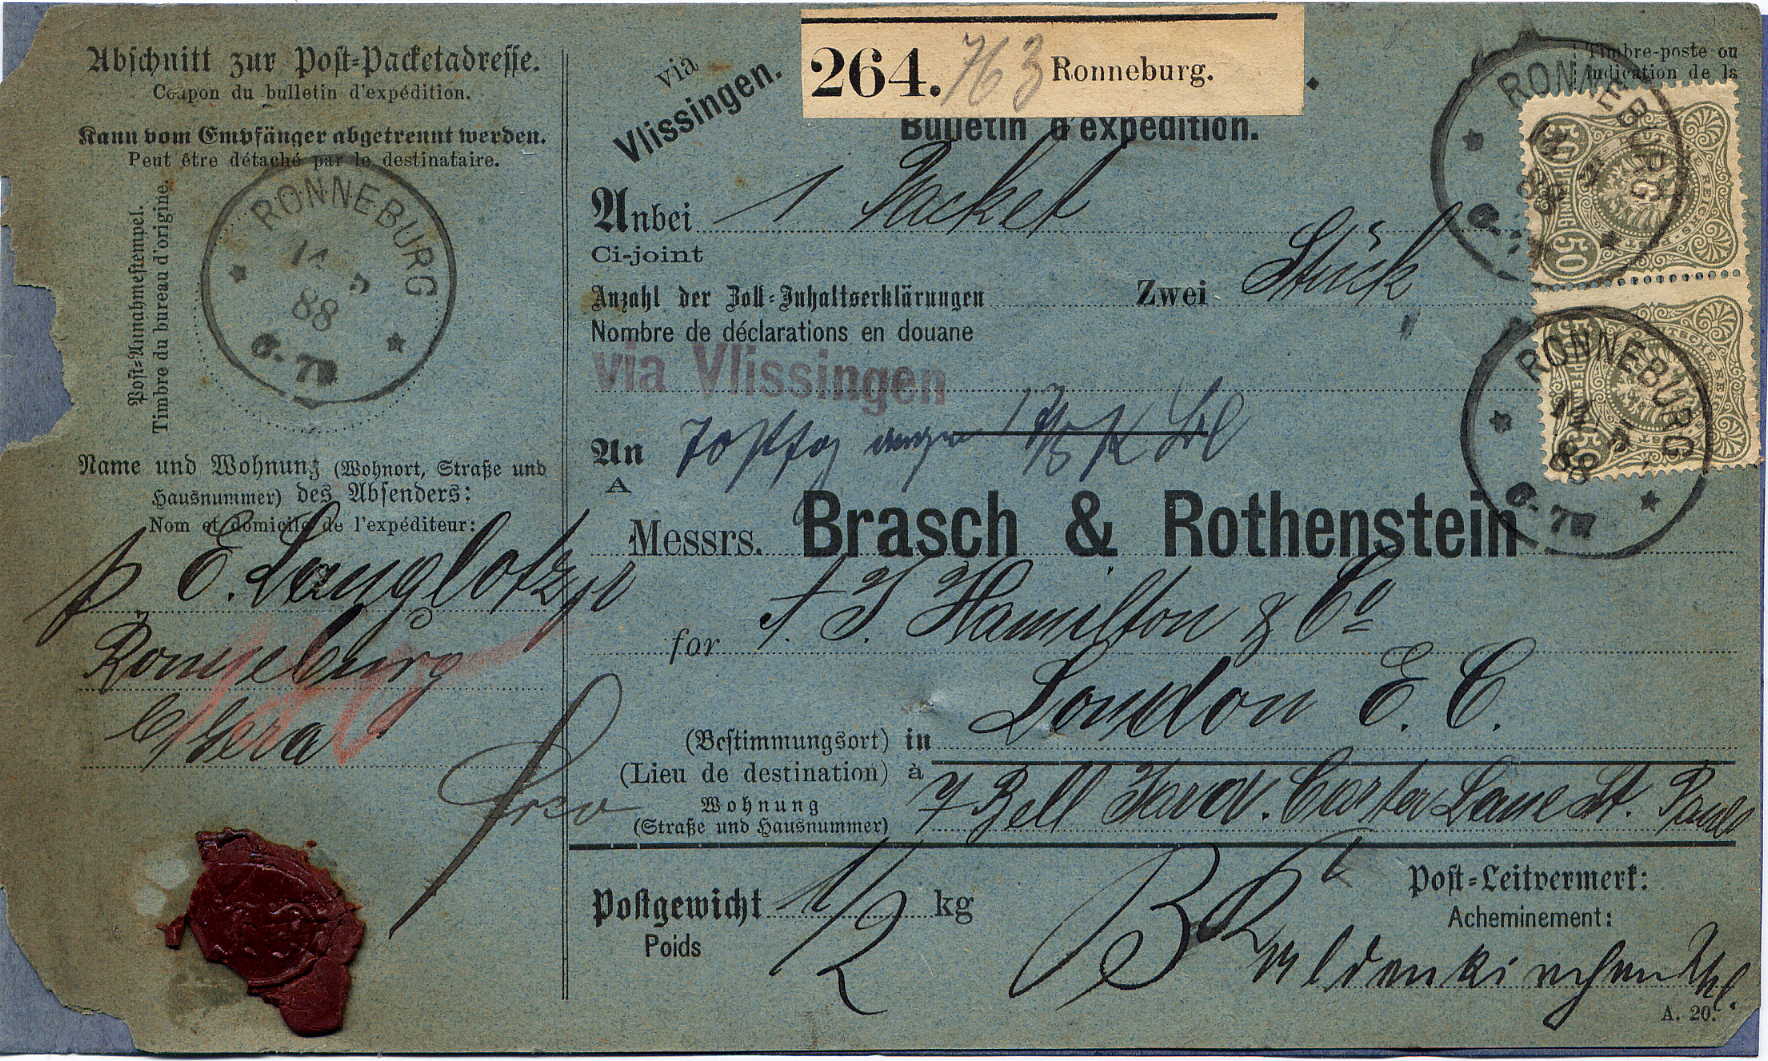 Abschnitt zur Post-Packetadresse.
Coupon du bulletin d'expédition.
Kann vom Empfänger abgetrennt werden.
Peut être détaché par le destinataire.
Post-Annahmestempel.
Timbre du bureau d'origine.
RONNEBURG
14 5
88
6-7N
Name und Wohnung (Wohnort, Straße und
Hausnummer) des Absenders:
Nom et domicile de l'expéditeur:
p E. Langlotz jr
Ronneburg
S/Gera
frco
via
Vlissingen.
264. 763 Ronneburg.
Bulletin d'expédition.
Timbre-poste ou
indication de la
RONNEBURG
14 5
88
6-7N
50
RONNEBURG
14 5
88
6-7N
50
Anbei 1 Packet
Ci-joint
Anzahl der Zoll-Inhaltserklärungen Zwei Stück
Nombre de déclarations en douane
via Vlissingen
An
A
Messrs. Brasch & Rothenstein
for A. J. Hamilton & Co
London E. C.
(Bestimmungsort) in
(Lieu de destination) à
Wohnung
(Straße und Hausnummer)
7 Bell Yard. Carter Lane St. Pauls
Postgewicht 1/2 kg
Poids
Post-Leitvermerk:
Acheminement:
A. 20.